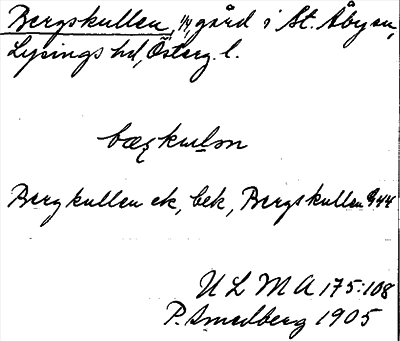 Bergskullen, 1/4, gård i St. Åby sn,
Lysings hd, Österg. l.
Bergkullen ek, bek, Bergskullen G44
ULMA 175:108
P. Smedberg 1905